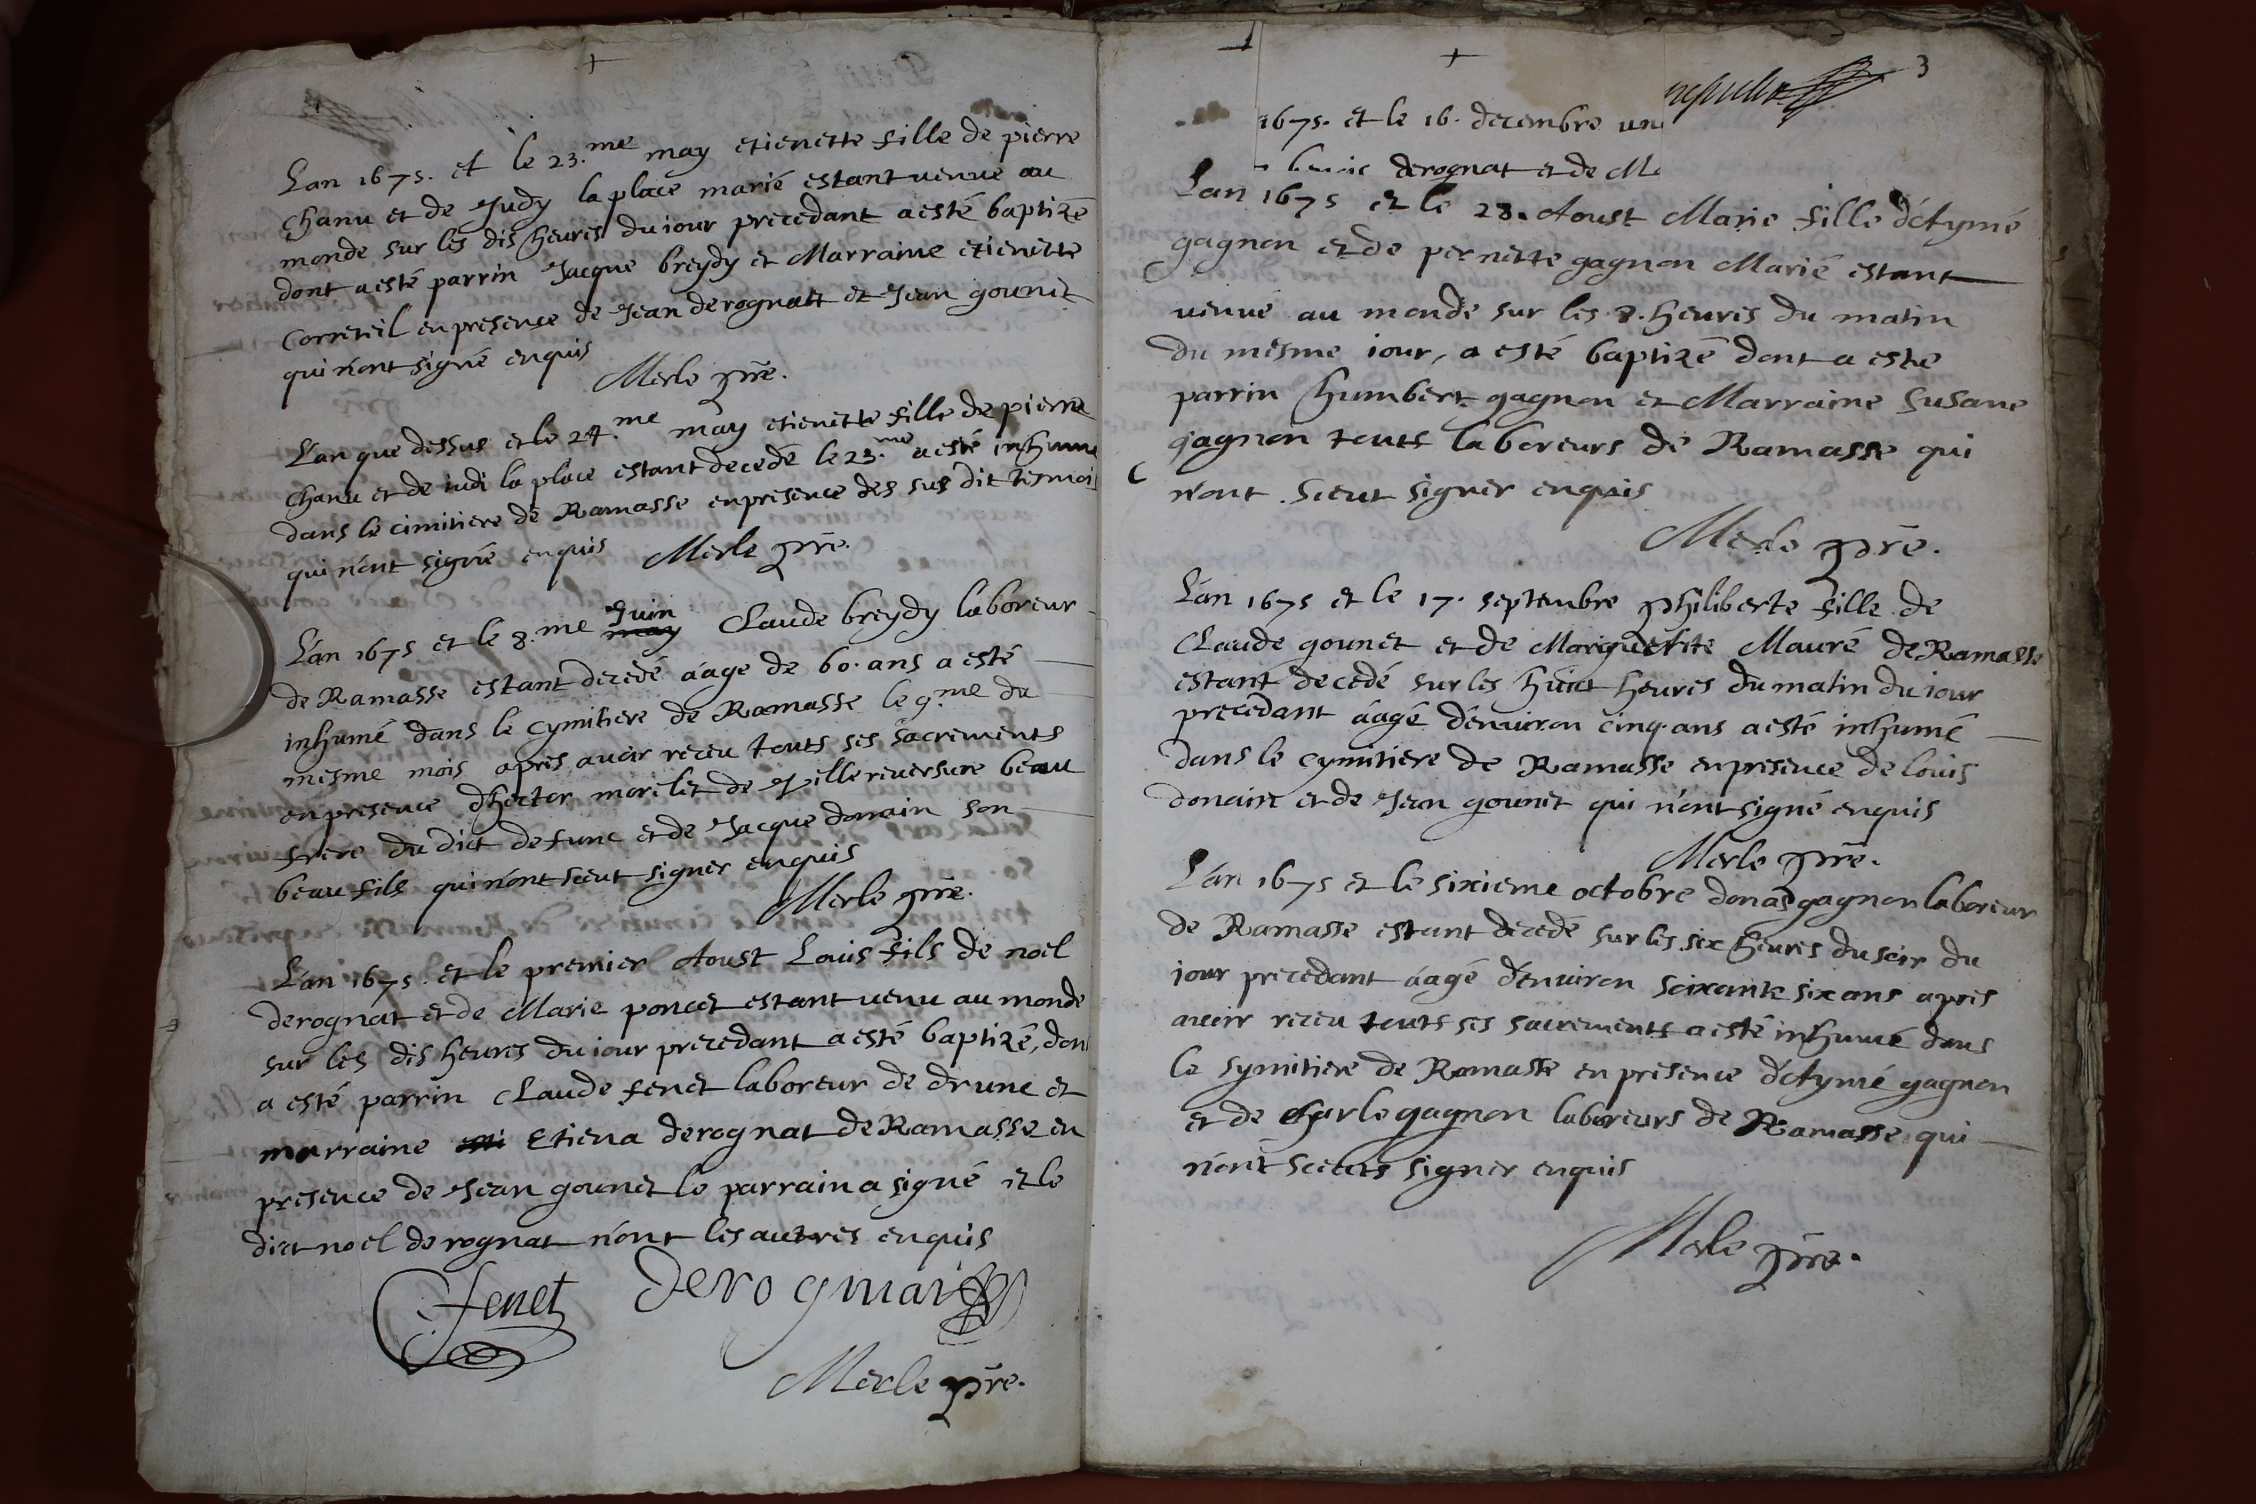 Lan 1675. et le 23.me may etienette fille de pierre
Chanu et de Judy la place marié estant venue au
monde sur les dis heures du iour precedant a esté baptizé
dont a esté parrin Jacque breydy et Marraine etienette
Correteil en presence de Jean derognatt et Jean gounet
qui n'ont signé enquis
Merle pre.
L'an que dessus et le 24.me may etienette fille de pierre
Chanu et de iudi la place estant decedé le 23.me a esté inhumé
dans le cimitiere de Ramasse en presence des sus dit tesmoi
qui n'ont signé enquis Merle pre.
L'an 1675 et le 8.me may Juin Claude breydy laboreur
de Ramasse estant decedé áage de 60. ans a esté
inhumé dans le cymitiere de Ramasse le 9.me du
mesme mois apres avoir receu touts ses sacrements
en presence d'hector morelet de Villereversure beau
frere du dict defunc et de Jacque donain son
beau fils qui n'ont sceut signer enquis
Merle pre.
L'an 1675. et le premier Aoust Louis fils de noel
derognat et de Marie poncet estant venu au monde
sur les dis heures du iour precedant a esté baptizé, dont
a esté parrin Claude fenet laboreur de drunc et
marraine Etiena derognat de Ramasse en
presence de Jean gounet le parrain a signé et le
dict noel derognat n'ont les autres enquis
fenet derognat
Merle pre.
3
1675. et le 16. decembre un
derognat et de Ma
L'an 1675 et le 28. Aoust Marie fille d'Aymé
gagnon et de pernette gagnon Marié estant
venué au monde sur les 8. heures du matin
du mesme iour, a esté baptizé dont a este
parrin humbert gagnon et Marraine Susane
gagnon touts laboreurs de Ramasse qui
n'ont sceut signer enquis
Merle pre.
L'an 1675 et le 17. septembre philiberte fille de
Claude gounet et de Marguerite Mauré de Ramasse
estant decedé sur les huict heures du matin du iour
precedant áagé d'environ cinq ans a esté inhumé
dans le cymitiere de Ramasse en presence de louis
donain et de Jean gounet qui n'ont signé enquis
Merle pre.
L'an 1675 et le sixieme octobre donas gagnon laboreur
de Ramasse estant decedé sur les six heures du soir du
iour precedant áagé d'environ soixante six ans apres
avoir receu touts ses sacrements a esté inhumé dans
le symitiere de Ramasse en presence d'Aymé gagnon
et de Charle gagnon laboreurs de Ramasse qui
n'ont sceuts signer enquis
Merle pre.